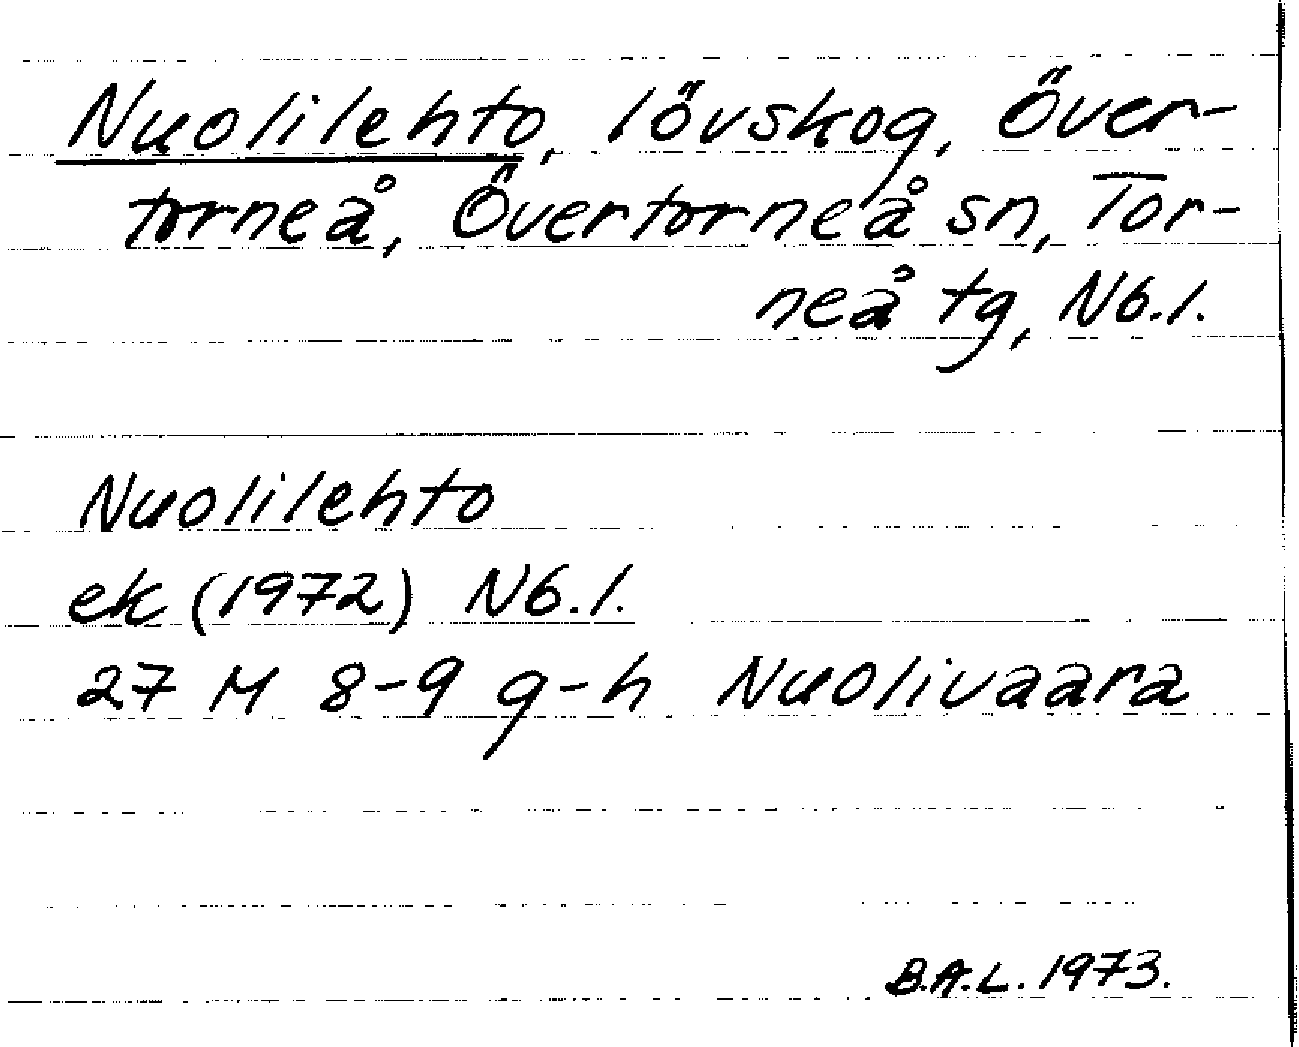 Nuolilehto, lövskog, Över-
torneå, Övertorneå sn, Tor-
neå tg, Nb.l.
Nuolilehto
ek (1972) Nb.l.
27 M 8-9 g-h Nuolivaara
B.A.L. 1973.